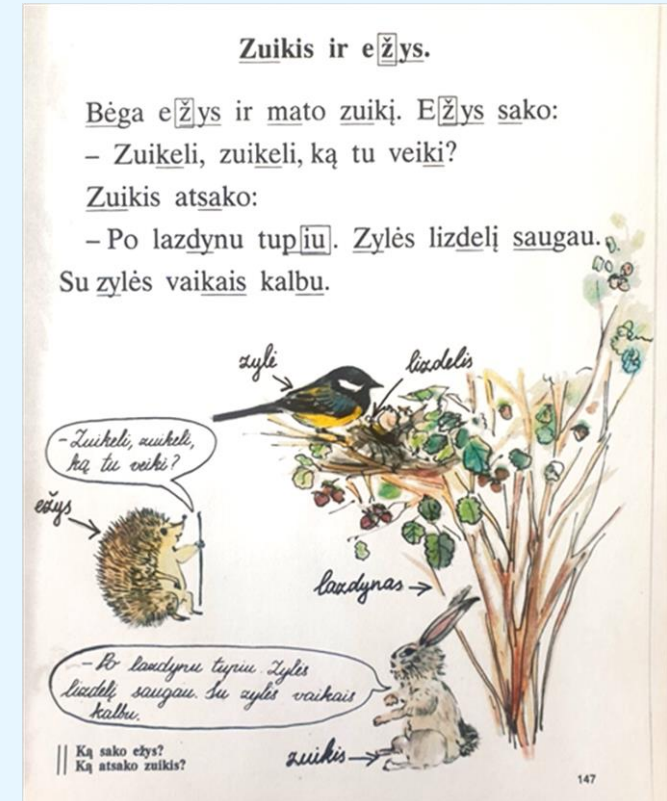 Zuikis ir ežys.
Bėga ežys ir mato zuikį. Ežys sako:
– Zuikeli, zuikeli, ką tu veiki?
Zuikis atsako:
– Po lazdynu tupiu. Zylės lizdelį saugau.
Su zylės vaikais kalbu.
zylė
lizdelis
– Zuikeli, zuikeli,
ką tu veiki?
ežys
lazdynas
– Po lazdynu tupiu. Zylės
lizdelį saugau. Su zylės vaikais
kalbu.
zuikis
Ką sako ežys?
Ką atsako zuikis?
147